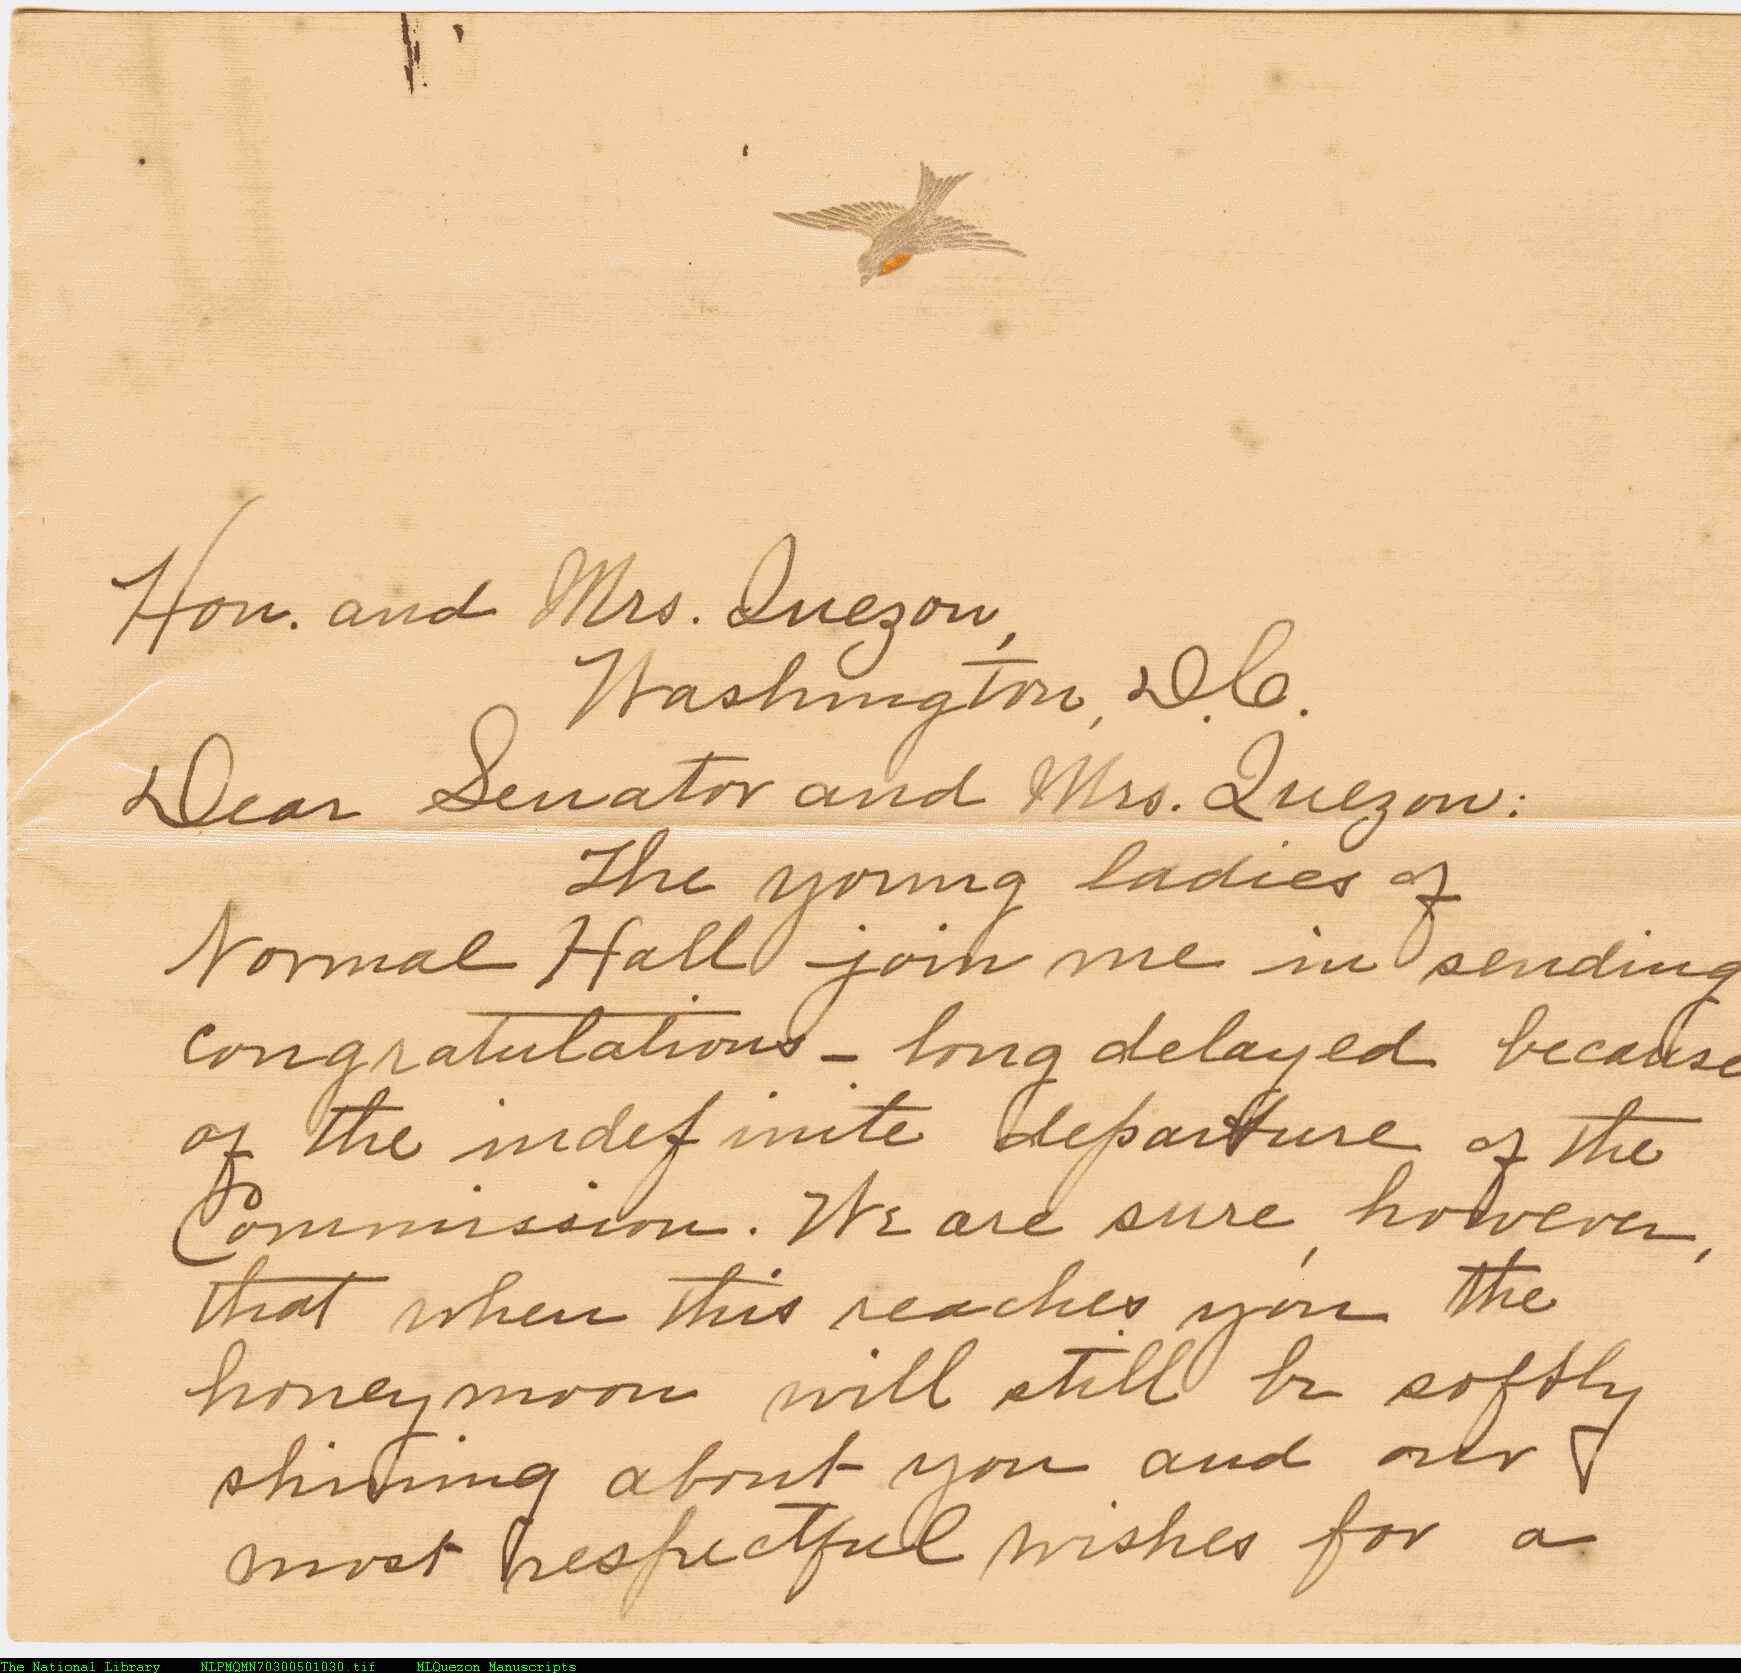 Hon. and Mrs. Quezon,
Washington, D.C.
Dear Senator and Mrs. Quezon:
The young ladies of
Normal Hall join me in sending
congratulations – long delayed because
of the indefinite departure of the
Commission. We are sure, however,
that when this reaches you the
honeymoon will still be softly
shining about you and our
most respectful wishes for a
The National Library NLPMQMN70300501030.tif MLQuezon Manuscripts